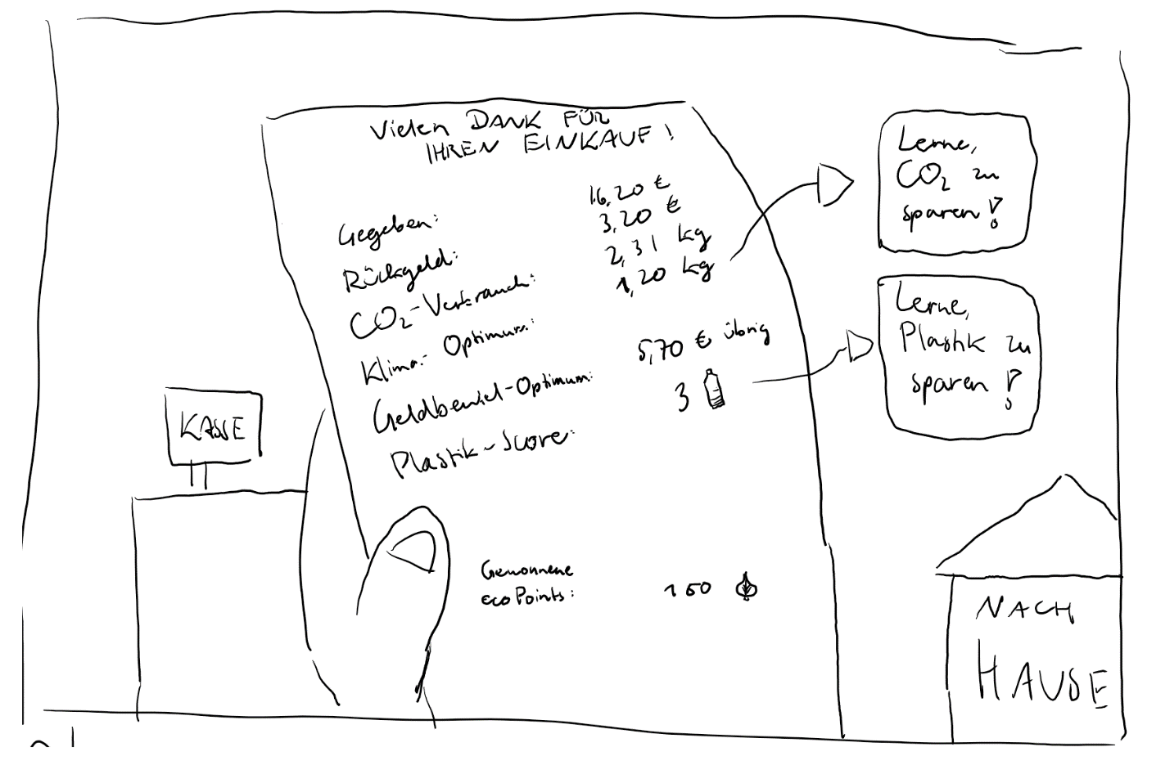 Vielen DANK FÜR
IHREN EINKAUF!
Gegeben: 16,20 €
Rückgeld: 3,20 €
CO₂-Verbrauch: 2,31 kg
Klima-Optimum: 1,20 kg
Geldbeutel-Optimum: 5,70 € übrig
Plastik-Score: 3
Gewonnene
ecoPoints: 150
Lerne,
CO₂ zu
sparen!
Lerne,
Plastik zu
sparen!
KASSE
NACH
HAUSE